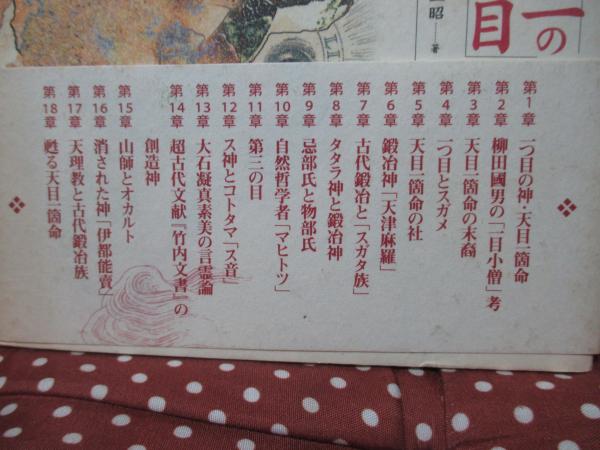 一の
目
昭——著
LI
第1章 一つ目の神・天目一箇命
第2章 柳田國男の「一目小僧」考
第3章 天目一箇命の末裔
第4章 一つ目とスガメ
第5章 天目一箇命の社
第6章 鍛冶神「天津麻羅」
第7章 古代鍛冶と「スガタ族」
第8章 タタラ神と鍛冶神
第9章 忌部氏と物部氏
第10章 自然哲学者「マヒトツ」
第11章 第三の目
第12章 ス神とコトタマ「ス音」
第13章 大石凝真素美の言霊論
第14章 超古代文献『竹内文書』の
創造神
第15章 山師とオカルト
第16章 消された神「伊都能賣」
第17章 天理教と古代鍛冶族
第18章 甦る天目一箇命